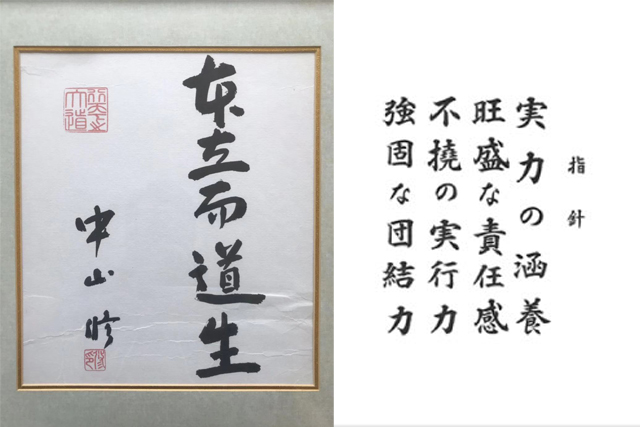 本立而道生
中山
指針
実力の涵養
旺盛な責任感
不撓の実行力
強固な団結力